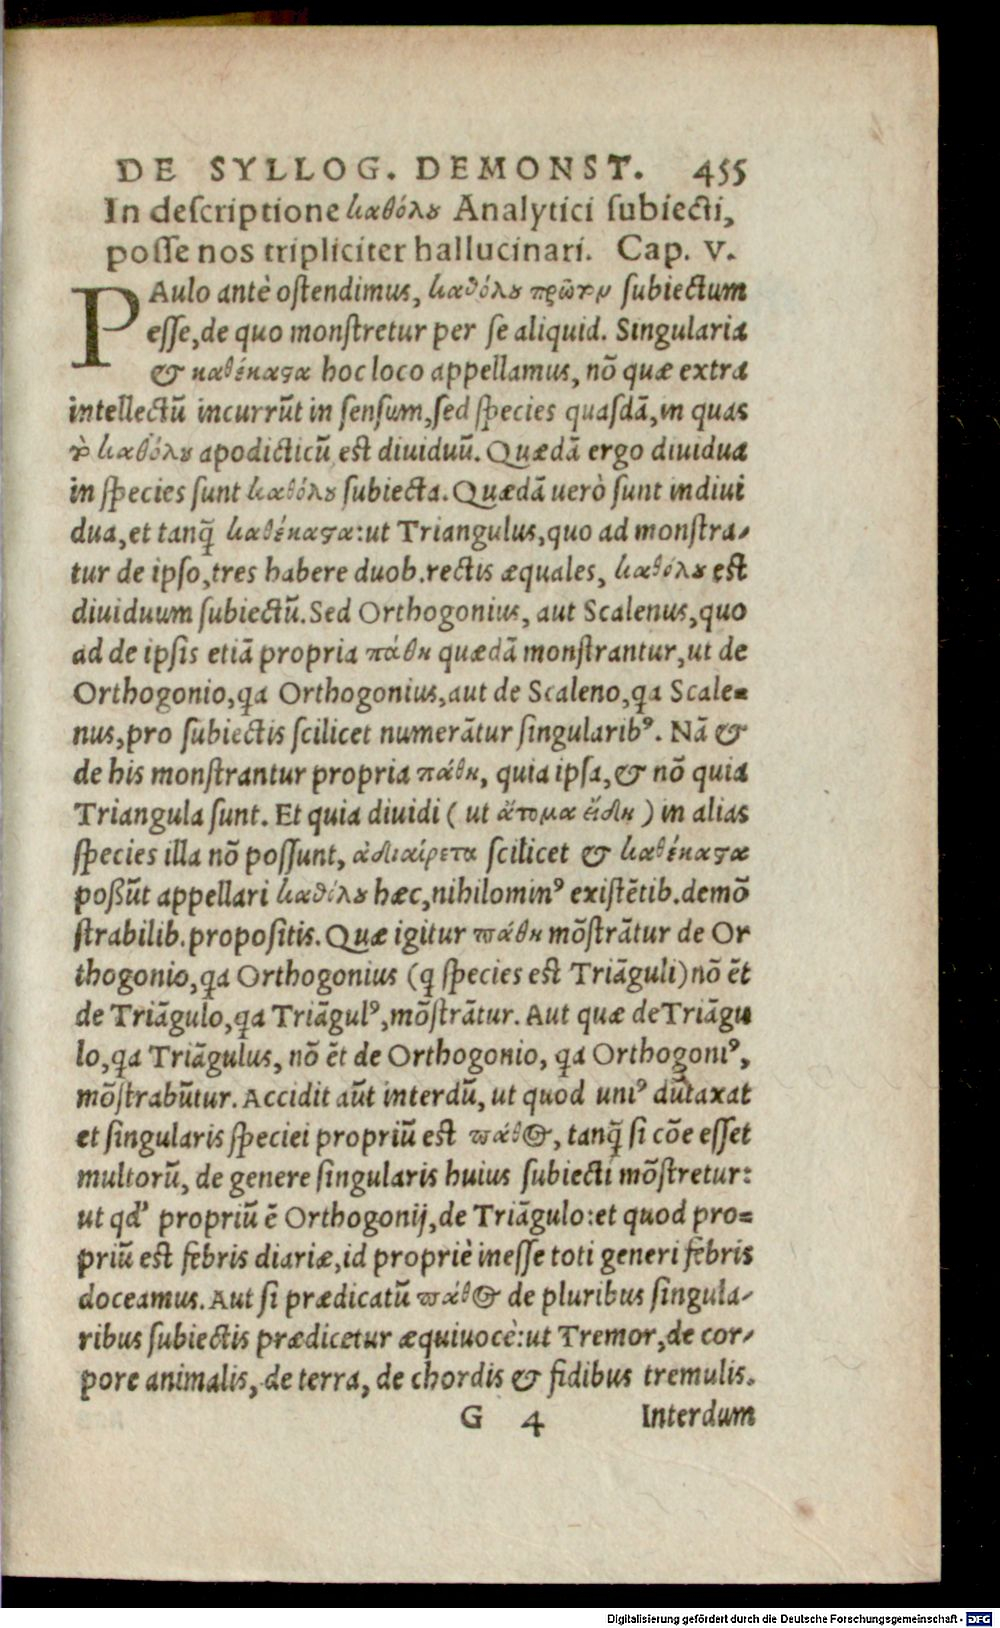 DE SYLLOG. DEMONST. 455
In descriptione καθόλου Analytici subiecti,
posse nos tripliciter hallucinari. Cap. V.
PAulo antè ostendimus, καθόλου πρῶτον subiectum
esse, de quo monstretur per se aliquid. Singularia
& καθέκαστα hoc loco appellamus, nõ quæ extra
intellectũ incurrũt in sensum, sed species quasdã, in quas
τὸ καθόλου apodicticũ est diuiduũ. Quædã ergo diuidua
in species sunt καθόλου subiecta. Quædã uerò sunt indiui
dua, et tanq̃ καθέκαστα: ut Triangulus, quo ad monstra-
tur de ipso, tres habere duob. rectis æquales, καθόλου est
diuiduum subiectũ. Sed Orthogonius, aut Scalenus, quo
ad de ipsis etiã propria πάθη quædã monstrantur, ut de
Orthogonio, qa Orthogonius, aut de Scaleno, qa Scale=
nus, pro subiectis scilicet numerãtur singularibꝰ. Nã &
de his monstrantur propria πάθη, quia ipsa, & nõ quia
Triangula sunt. Et quia diuidi (ut ἄτομα εἴδη) in alias
species illa nõ possunt, ἀδιαίρετα scilicet & καθέκαστα
possũt appellari καθόλου hæc, nihilominꝰ existẽtib. demõ
strabilib. propositis. Quæ igitur πάθη mõstrãtur de Or
thogonio, qa Orthogonius (q̃ species est Triãguli) nõ ẽt
de Triãgulo, qa Triãgulꝰ, mõstrãtur. Aut quæ de Triãgu
lo, qa Triãgulus, nõ ẽt de Orthogonio, qa Orthogoniꝰ,
mõstrabũtur. Accidit aũt interdũ, ut quod uniꝰ dũtaxat
et singularis speciei propriũ est πάθος, tanq̃ si cõe esset
multorũ, de genere singularis huius subiecti mõstretur:
ut qd' propriũ ẽ Orthogonij, de Triãgulo: et quod pro=
priũ est febris diariæ, id propriè inesse toti generi febris
doceamus. Aut si prædicatũ πάθος de pluribus singula-
ribus subiectis prædicetur æquiuocè: ut Tremor, de cor-
pore animalis, de terra, de chordis & fidibus tremulis.
G 4 Interdum
Digitalisierung gefördert durch die Deutsche Forschungsgemeinschaft - DFG